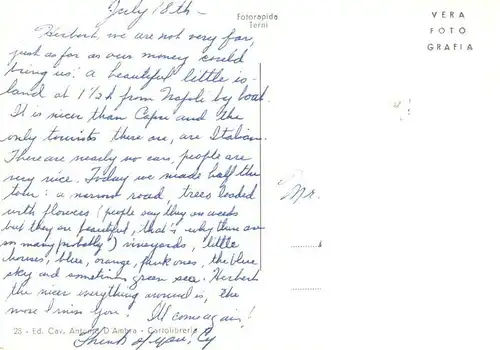 July 18th -
Herbert, we are not very far,
just as far as our money could
bring us: a beautiful little is-
land at 1½ h from Napoli by boat.
It is nicer than Capri and the
only tourists there are, are Italian.
There are nearly no cars, people are
very nice. Today we made half the
tour: a narrow road, trees loaded
with flowers (people say they are weeds
but they are beautiful, that is why there are
so many probably) vineyards, little
houses, blue, orange, pink ones, the blue
sky and sometimes green sea. Herbert
the nicer everything around is, the
more I miss you! I'll come again!
Think of you, Cy
Fotorapida
Terni
VERA
FOTO
GRAFIA
Mr.
28 - Ed. Cav. Antonio D'Ambra - Cartolibreria